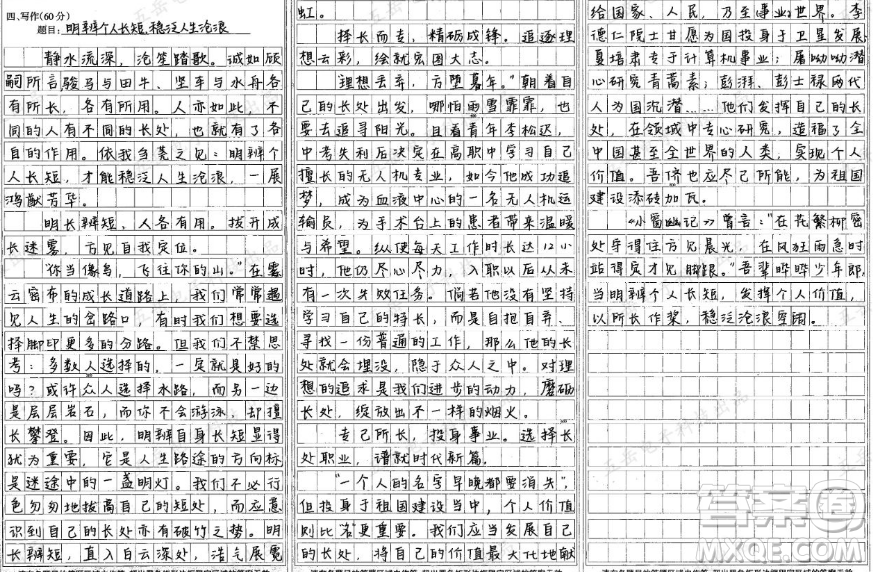 四、写作(60分)
题目：明辨个人长短，稳泛人生沧浪
静水流深，沧笙踏歌。诚如顾
嗣所言骏马与田牛、坚车与水舟各
有所长，各有所用。人亦如此，不
同的人有不同的长处，也就有了各
自的作用。依我刍荛之见：明辨个
人长短，才能稳泛人生沧浪，一展
鸿猷芳华。
明长辨短、人各有用。拨开成
长迷雾，方见自我定位。
“你当像鸟，飞往你的山。”在雾
云密布的成长道路上，我们常常遇
见人生的岔路口，有时我们想要选
择脚印更多的分路。但我们不禁思
考：多数人选择的，一定就是好的
吗？或许众人选择水路，而另一边
是层层岩石，而你不会游泳、却擅
长攀登。因此，明辨自身长短显得
犹为重要，它是人生路途的方向标
是迷途中的一盏明灯。我们不必行
色匆匆地拔高自己的短处，而应意
识到自己的长处亦有破竹之势。明
长辨短，直入白云深处，浩气展霓
虹。
择长而专，精砺成锋。追逐理
想云彩，绘就宏图大志。
“理想丢弃，方堕暮年。”朝着自
己的长处出发，哪怕雨雪霏霏，也
要去追寻阳光。且看青年李松迟，
中考失利后决定在高职中学习自己
擅长的无人机专业，如今他成功追
梦，成为血液中心的一名无人机运
输员，为手术台上的患者带来温暖
与希望。纵使每天工作时长达12小
时，他仍尽心尽力，入职以后从未
有一次失败任务。倘若他没有坚持
学习自己的特长，而是自抱自弃、
寻找一份普通的工作，那么他的长
处就会埋没，隐于众人之中。对理
想的追求是我们进步的动力，磨砺
长处，绽放出不一样的烟火。
专己所长，投身事业。选择长
处职业，谱就时代新篇。
“一个人的名字早晚都要消失”，
但投身于祖国建设当中，个人价值
则比名更重要。我们应当发展自己
的长处，将自己的价值最大化地献
给国家、人民，乃至事业，世界。李
德仁院士甘愿为国投身于卫星发展，
夏培肃专于计算机事业；屠呦呦潜
心研究青蒿素；彭湃、彭士禄两代
人为国沉潜……他们发挥自己的长
处，在领域中专心研究，造福了全
中国甚至全世界的人类，实现个人
价值。吾侪也应尽己所能，为祖国
建设添砖加瓦。
《小窗幽记》曾言：“在花繁柳密
处拨得住方见晨光，在风狂雨急时
站得定才见脚跟。”吾辈晔晔少年郎，
当明辨个人长短，发挥个人价值，
以所长作桨，稳泛沧浪空阔。
答案圈